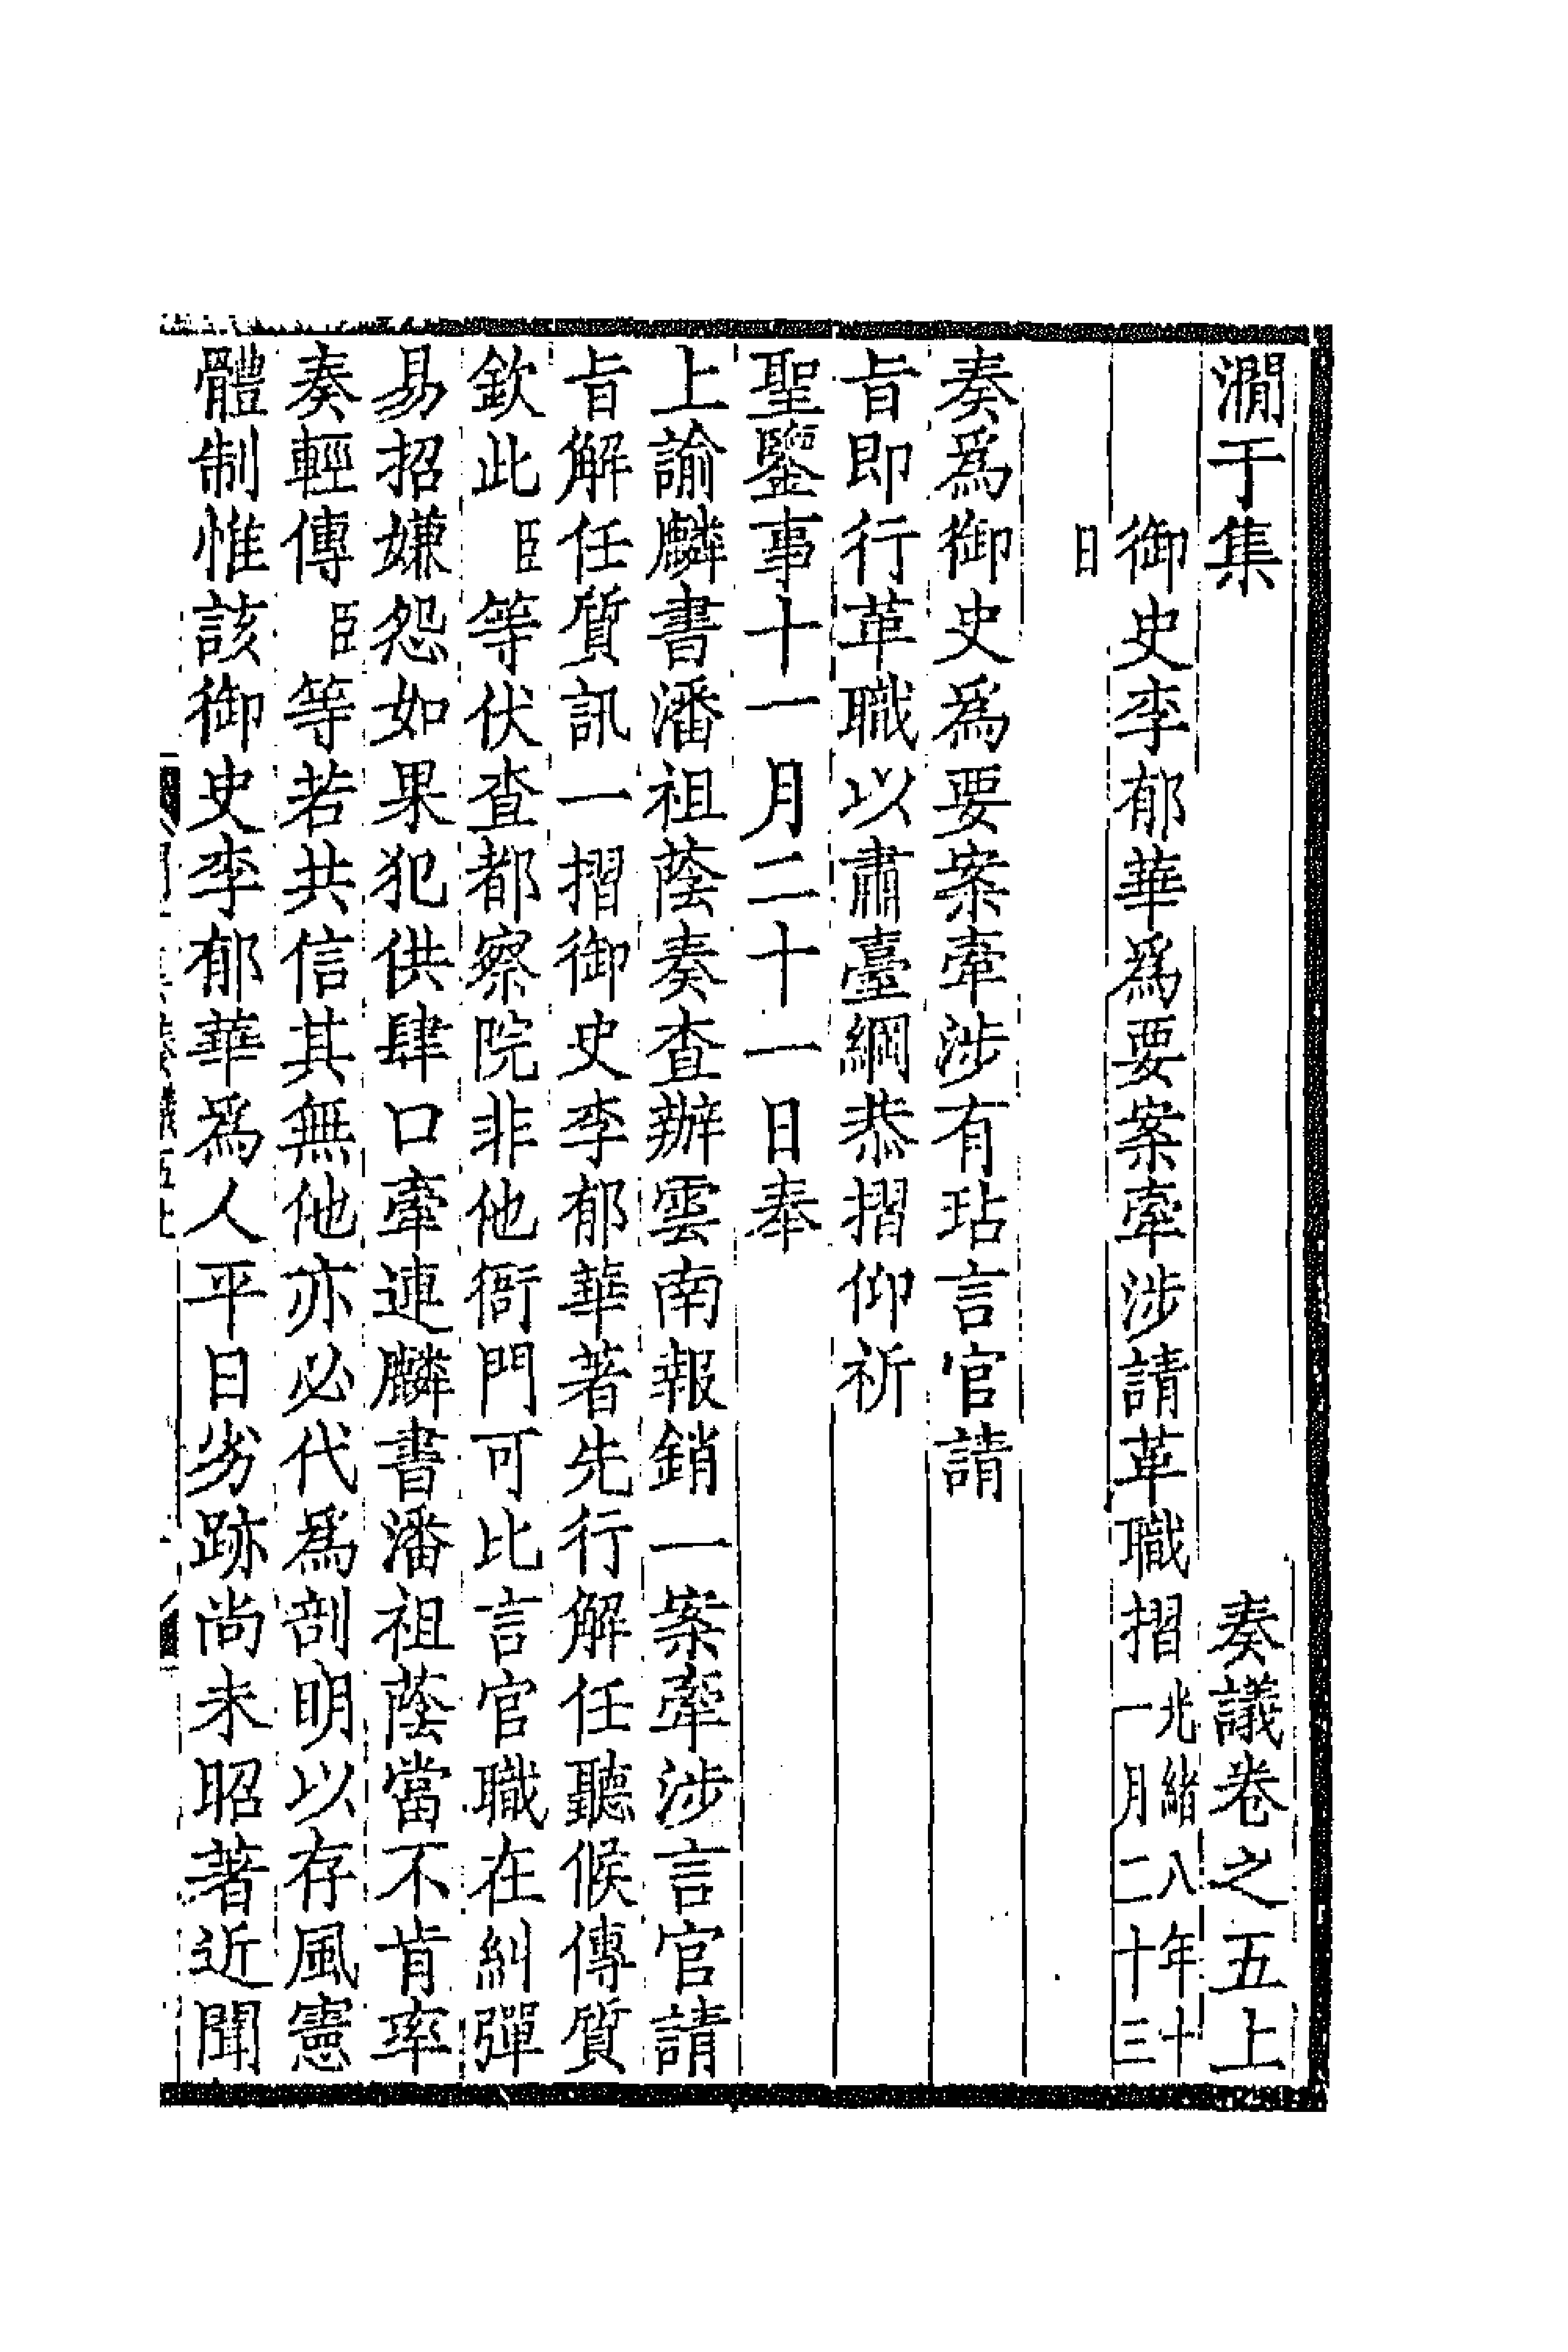 澗于集 奏議卷之五上
御史李郁華爲要案牽涉請革職摺光緒八年十一月二十三
日
奏爲御史爲要案牽涉有玷言官請
旨即行革職以肅臺綱恭摺仰祈
聖鑒事十一月二十一日奉
上諭麟書潘祖蔭奏查辦雲南報銷一案牽涉言官請
旨解任質訊一摺御史李郁華著先行解任聽候傳質
欽此臣等伏查都察院非他衙門可比言官職在糾彈
易招嫌怨如果犯供肆口牽連麟書潘祖蔭當不肯率
奏輕傳臣等若共信其無他亦必代爲剖明以存風憲
體制惟該御史李郁華爲人平日劣跡尚未昭著近聞